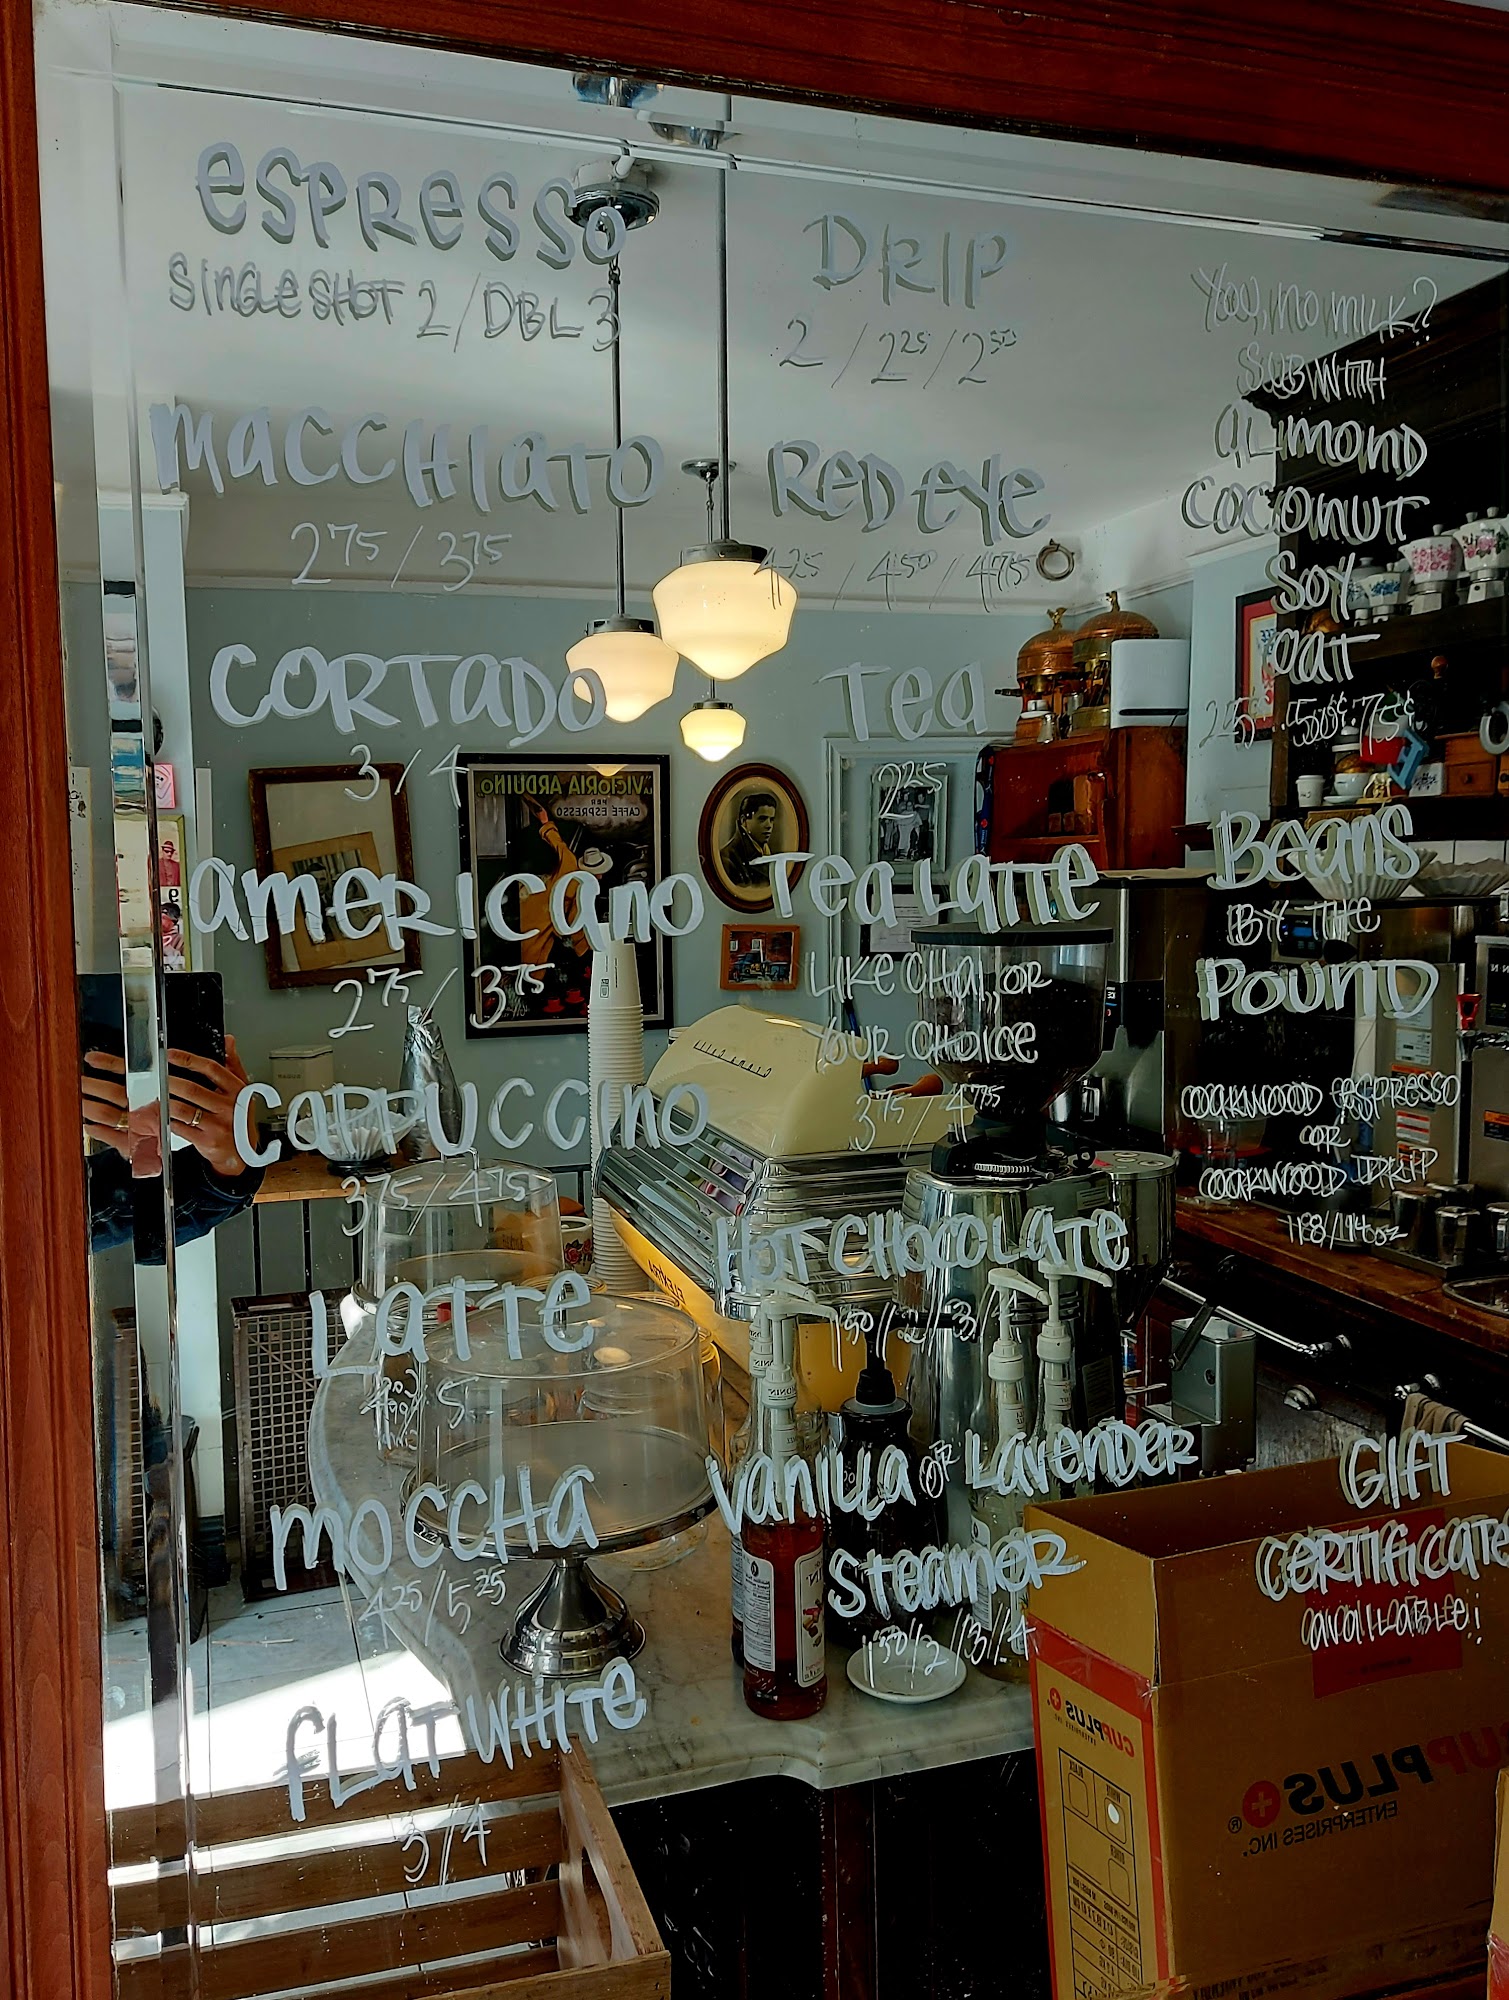 espresso
Single SHOT 2/DBL 3
macchiato
2 75 / 3 75
CORTADO
3/4
americano
2 75 / 3 75
cappuccino
3 75 / 4 75
Latte
5
moccha
4 25 / 5 25
flat WHITE
3/4
DRIP
2 / 2 25 / 2 50
RED eye
4 25 / 4 50 / 4 75
Tea
2 25
Tea Latte
LIKE CHAI, OR
YOUR CHOICE
3 75 / 4 75
HOT CHOCOLATE
1 50 / 2 / 3 / 4
Vanilla OR Lavender
Steamer
1 50 / 2 / 3 / 4
You, no milk?
SUB WITH
ALMOND
COCONUT
SOY
OAT
25¢ . 50¢ . 75¢
Beans
BY THE
POUND
ESPRESSO
OR
DRIP
GIFT
CERTIFICATE
available!
"VICTORIA ARDUINO"
CAFFÈ ESPRESSO
ELEKTRA
CUPPLUS
ENTERPRISES INC.
CUPPLUS
ENTERPRISES INC.